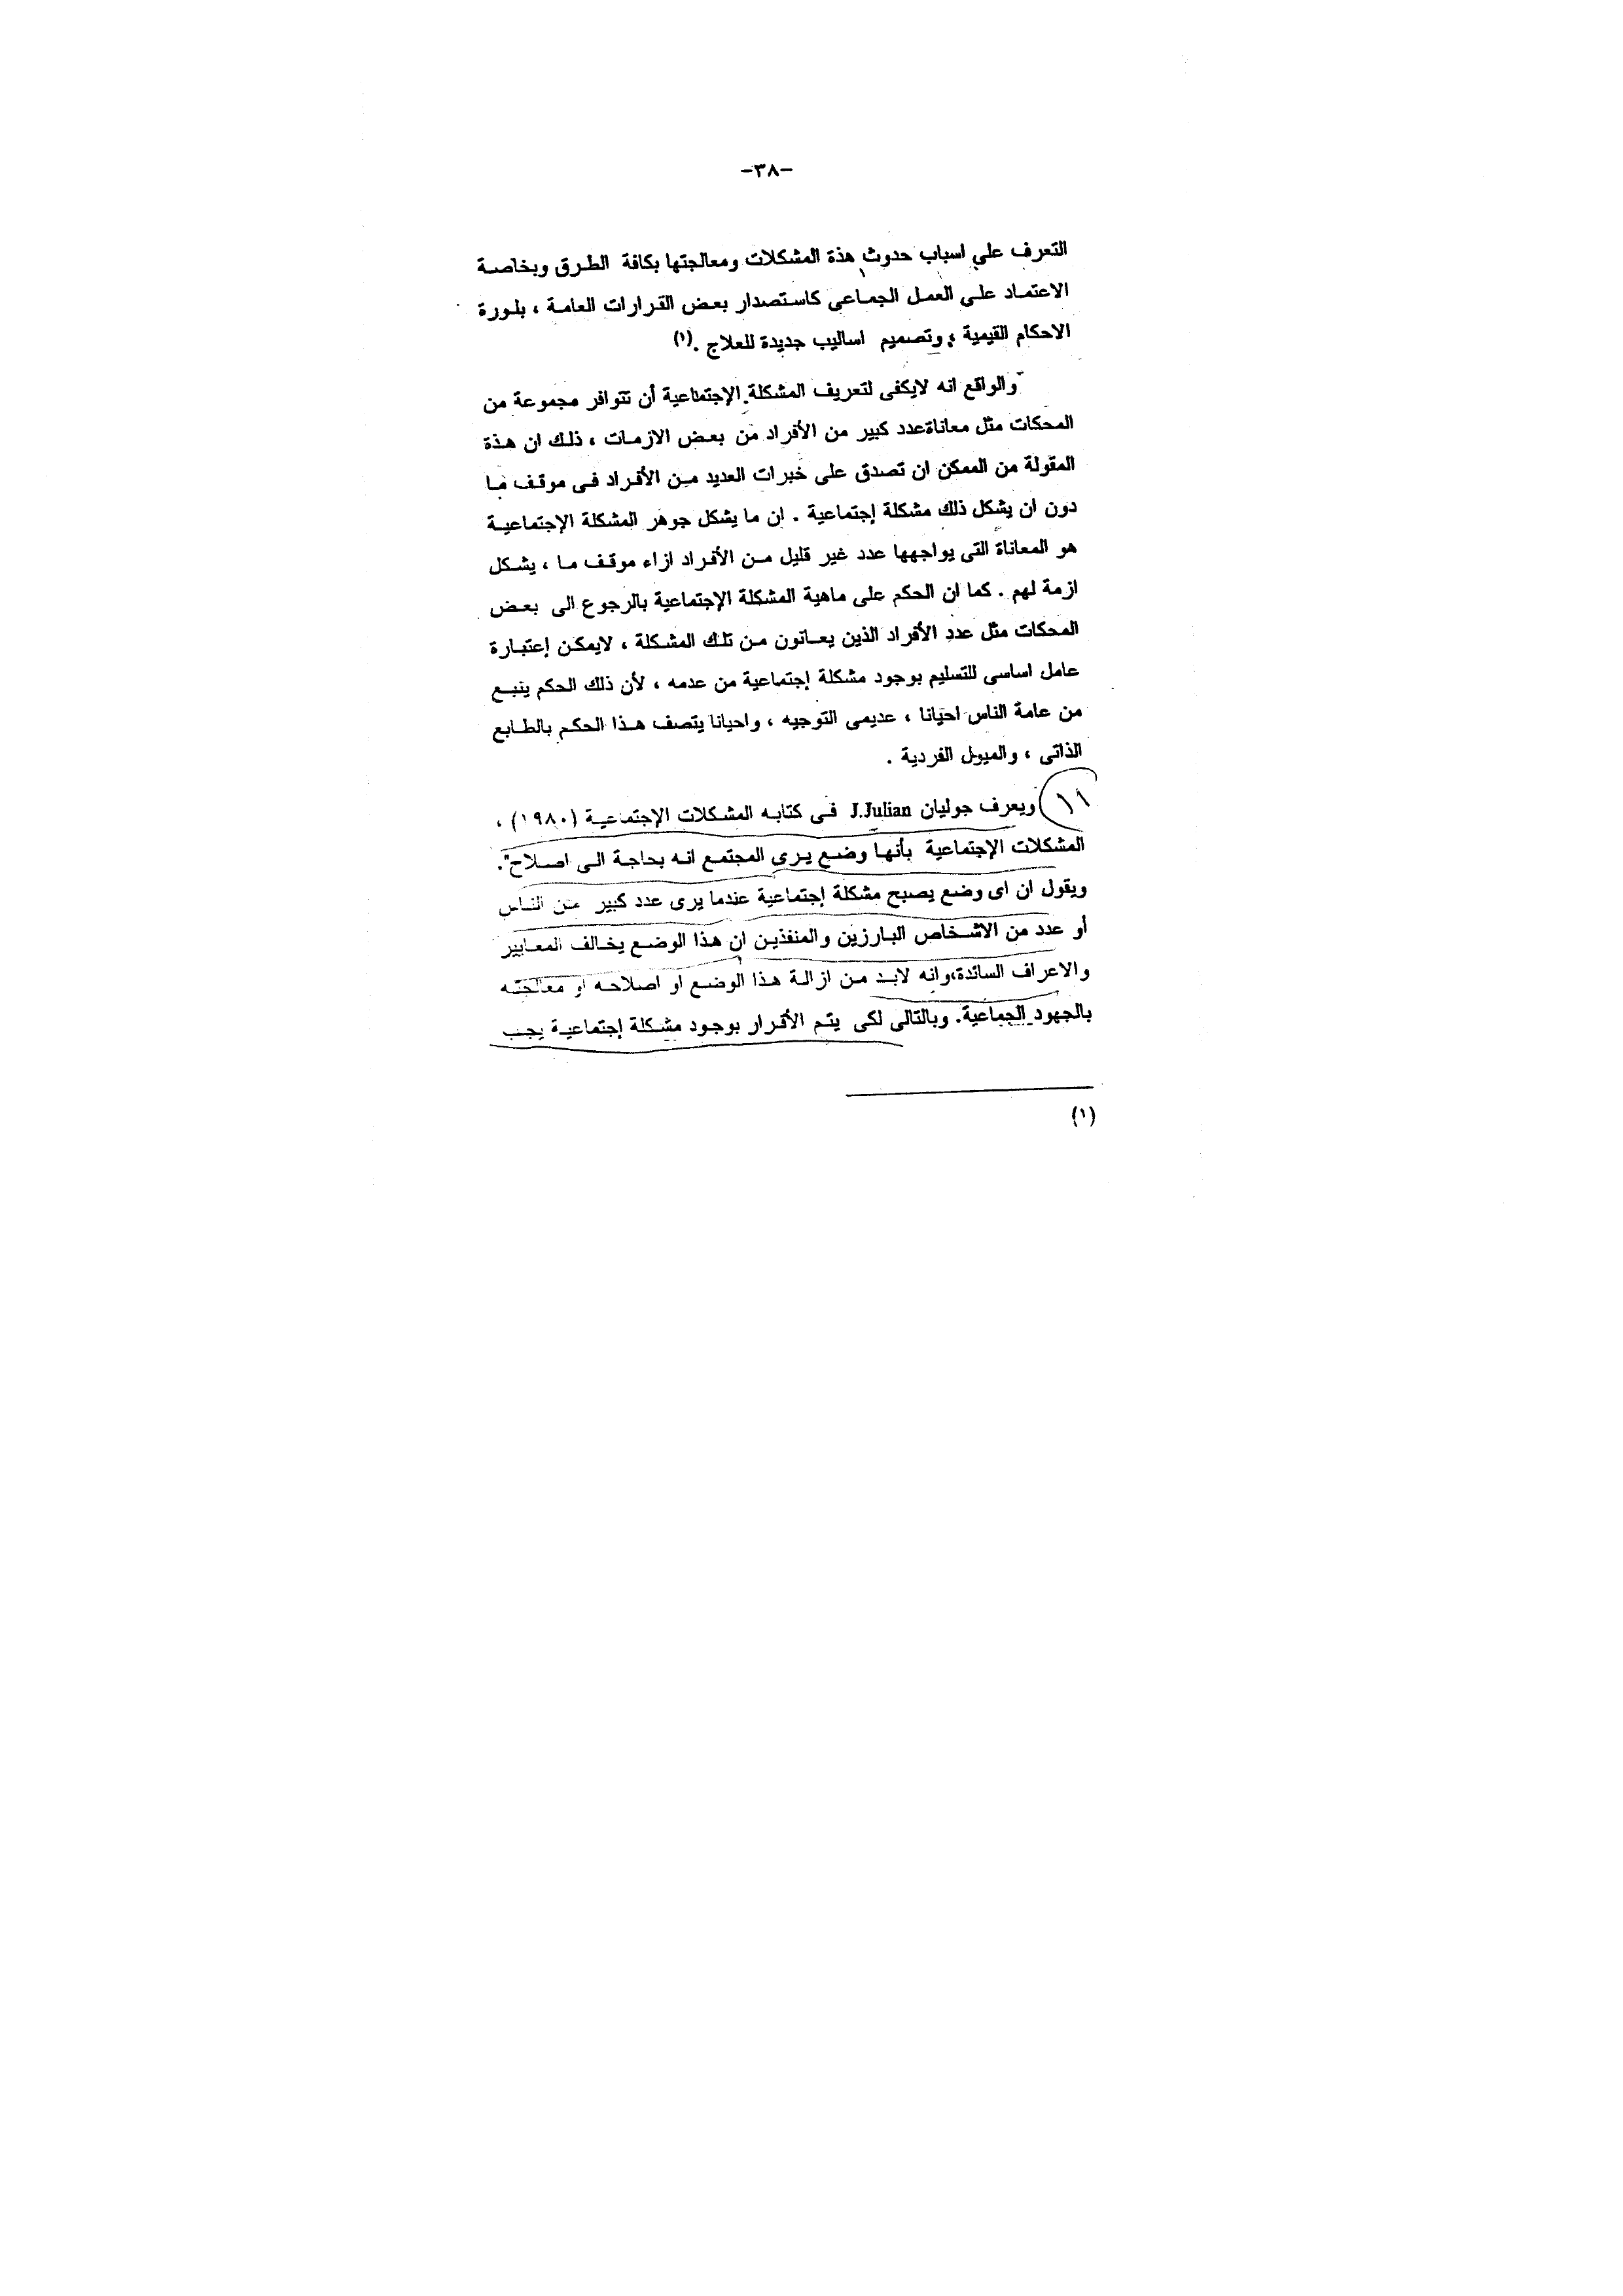 -٣٨-
التعرف على اسباب حدوث هذة المشكلات ومعالجتها بكافة الطرق وبخاصة
الاعتماد على العمل الجماعى كاستصدار بعض القرارات العامة ، بلورة
الاحكام القيمية ، وتصميم اساليب جديدة للعلاج .(١)
والواقع انه لايكفى لتعريف المشكلة الإجتماعية أن تتوافر مجموعة من
المحكات مثل معاناةعدد كبير من الأفراد من بعض الازمات ، ذلك ان هذة
المقولة من الممكن ان تصدق على خبرات العديد من الأفراد فى موقف ما
دون ان يشكل ذلك مشكلة إجتماعية . ان ما يشكل جوهر المشكلة الإجتماعية
هو المعاناة التى يواجهها عدد غير قليل من الأفراد ازاء موقف ما ، يشكل
ازمة لهم . كما ان الحكم على ماهية المشكلة الإجتماعية بالرجوع الى بعض
المحكات مثل عدد الأفراد الذين يعانون من تلك المشكلة ، لايمكن إعتبارة
عامل اساسى للتسليم بوجود مشكلة إجتماعية من عدمه ، لأن ذلك الحكم ينبع
من عامة الناس احيانا ، عديمى التوجيه ، واحيانا يتصف هذا الحكم بالطابع
الذاتى ، والميول الفردية .
١١ ويعرف جوليان J.Julian فى كتابه المشكلات الإجتماعية (١٩٨٠) ،
المشكلات الإجتماعية بأنها وضع يرى المجتمع انه بحاجة الى اصلاح".
ويقول ان اى وضع يصبح مشكلة إجتماعية عندما يرى عدد كبير من الناس
أو عدد من الاشخاص البارزين والمنفذين ان هذا الوضع يخالف المعايير
والاعراف السائدة،وانه لابد من ازالة هذا الوضع او اصلاحه او معالجته
بالجهود الجماعية. وبالتالى لكى يتم الأقرار بوجود مشكلة إجتماعية يجب
(١)